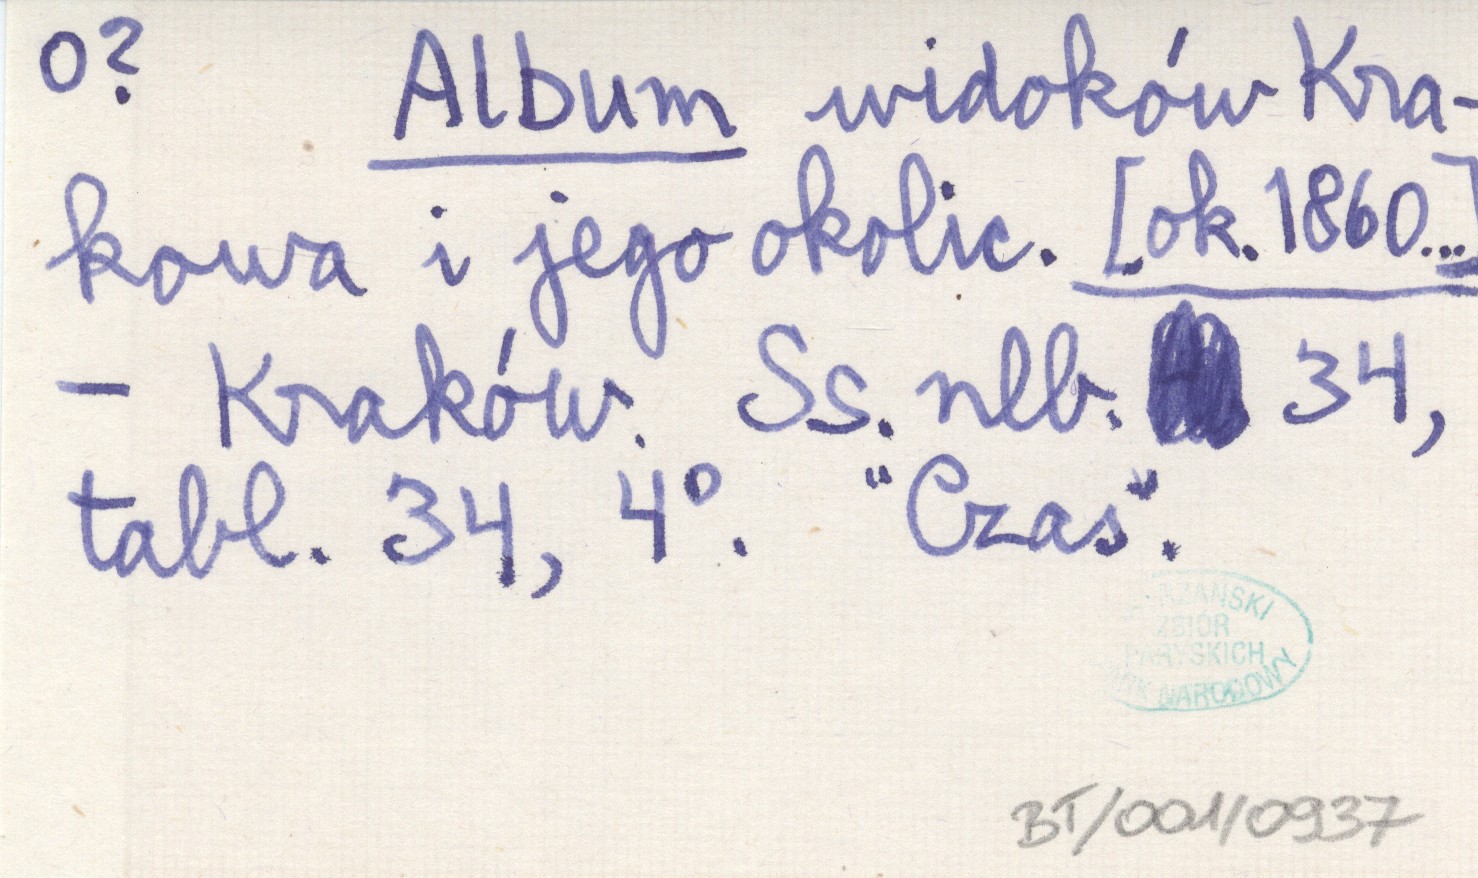 o? Album widoków Kra-
kowa i jego okolic. [ok. 1860...]
- Kraków. Ss. nlb. 34,
tabl. 34, 4º. "Czas".
ZBIÓR
NARODOWY
BT/001/0937